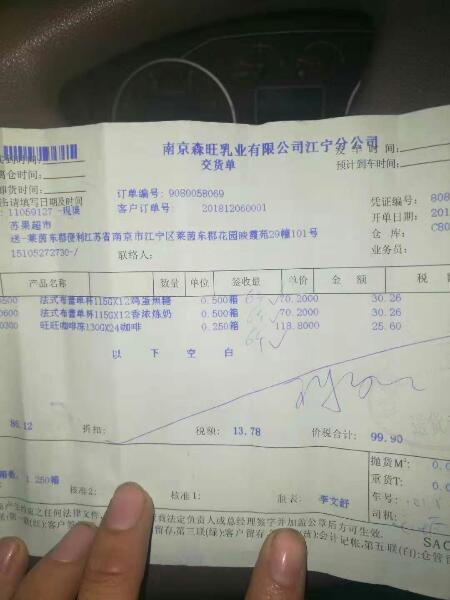 南京森旺乳业有限公司江宁分公司
交货单
发车时间:
离仓时间:
预计到车时间:
卸货时间:
订单编号: 9080058069
凭证编号: 808
请填写日期及时间
客户订单号: 201812060001
开单日期: 201
: 11059127 -现换
仓 库: C80
苏果超市
业务员:
送-莱茵东郡便利江苏省南京市江宁区莱茵东郡花园映霞苑29幢101号
15105272730-/
联络人:
产品名称 数量 单位 签收量 单价 金 额 税
0500 法式布蕾单杯115GX12鸡蛋焦糖 0.500箱 6 70.2000 30.26
0600 法式布蕾单杯115GX12香浓炼奶 0.500箱 6 70.2000 30.26
0300 旺旺咖啡冻130GX24咖啡 0.250箱 6 118.8000 25.60
以 下 空 白
86.12 折扣: 税额: 13.78 价税合计: 99.90
抛货M³: 0.0
箱数: 1.250箱
重货T: 0.0
核准2: 核准1: 制表: 李文舒
车号:
司机: